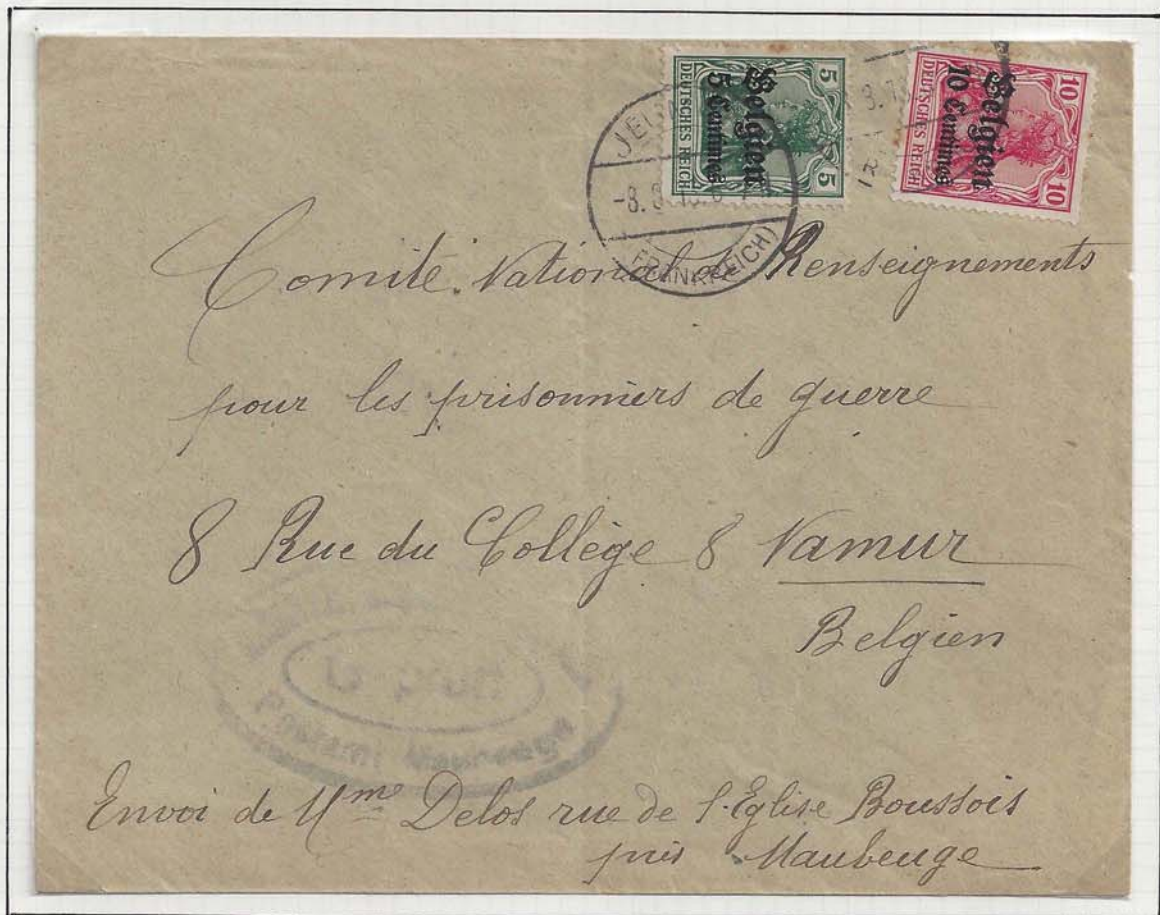 5 5
DEUTSCHES REICH
Belgien
5 Centimes
10 10
DEUTSCHES REICH
Belgien
10 Centimes
(FRANKREICH)
Comité National de Renseignements
pour les prisonniers de guerre
8 Rue du Collège 8 Namur
Belgien
Postamt Maubeuge
Envoi de Mme Delos rue de l'Eglise Boussois
près Maubeuge